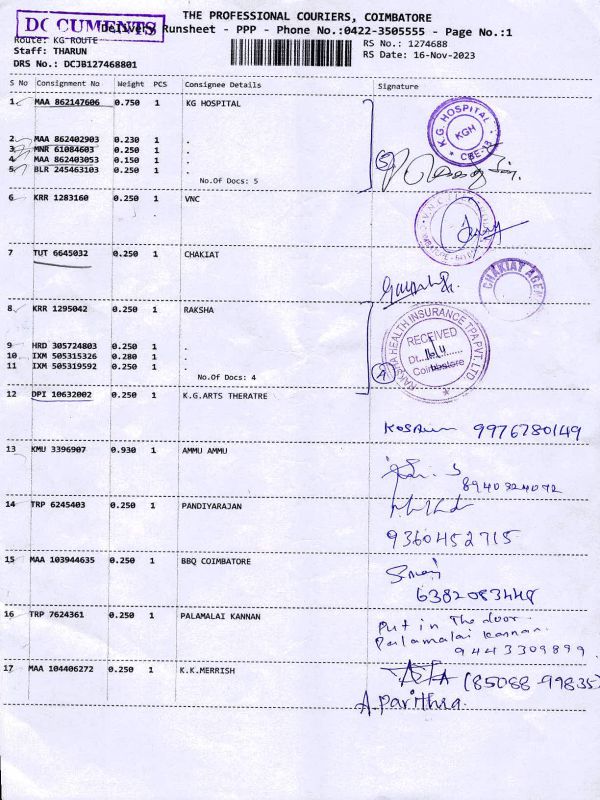 THE PROFESSIONAL COURIERS, COIMBATORE
DOCUMENTS
Delivery Runsheet - PPP - Phone No.:0422-3505555 - Page No.:1
Route: KG-ROUTE
Staff: THARUN
DRS No.: DCJB127468801
RS No.: 1274688
RS Date: 16-Nov-2023
S No Consignment No Weight PCS Consignee Details Signature
1 MAA 862147606 0.750 1 KG HOSPITAL
K.G. HOSPITAL
KGH
CBE-18
2 MAA 862402903 0.230 1 .
3 MNR 61084603 0.250 1 .
4 MAA 862403053 0.150 1 .
5 BLR 245463103 0.250 1 .
No.Of Docs: 5
5
6 KRR 1283160 0.250 1 VNC
7 TUT 6645032 0.250 1 CHAKIAT
CHAKIAT AGEN
8 KRR 1295042 0.250 1 RAKSHA
RAKSHA HEALTH INSURANCE TPA PVT. LTD
RECEIVED
Dt. 16/11
Coimbatore
9 HRD 305724803 0.250 1 .
10 IXM 505315326 0.280 1 .
11 IXM 505319592 0.250 1 .
No.Of Docs: 4
4
12 DPI 10632002 0.250 1 K.G.ARTS THERATRE
9976780149
13 KMU 3396907 0.930 1 AMMU AMMU
8940324072
14 TRP 6245403 0.250 1 PANDIYARAJAN
9360452715
15 MAA 103944635 0.250 1 BBQ COIMBATORE
6382083448
16 TRP 7624361 0.250 1 PALAMALAI KANNAN
Put in The door.
Palamalai kannan.
9443309899
17 MAA 104406272 0.250 1 K.K.MERRISH
(85088-99835)
A.Parithra